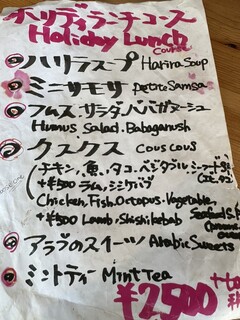 ホリディランチコース
Holiday Lunch
Course
ハリラスープ Harira Soup
ミニサモサ Petite Samsa
フムス・サラダ・ババガヌーシュ
Humus, Salad, Babaganush
クスクス couscous
(チキン, 魚, タコ, ベジタブル, シーフード
+¥500 ラム, シシケバブ)
(Chicken, Fish, Octopus, Vegetable,
+¥500 Lamb, Shishikebab
アラブのスイーツ Arabic Sweets
ミントティー Mint Tea
¥2500